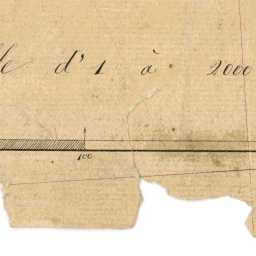 le d'1 à 2000
100